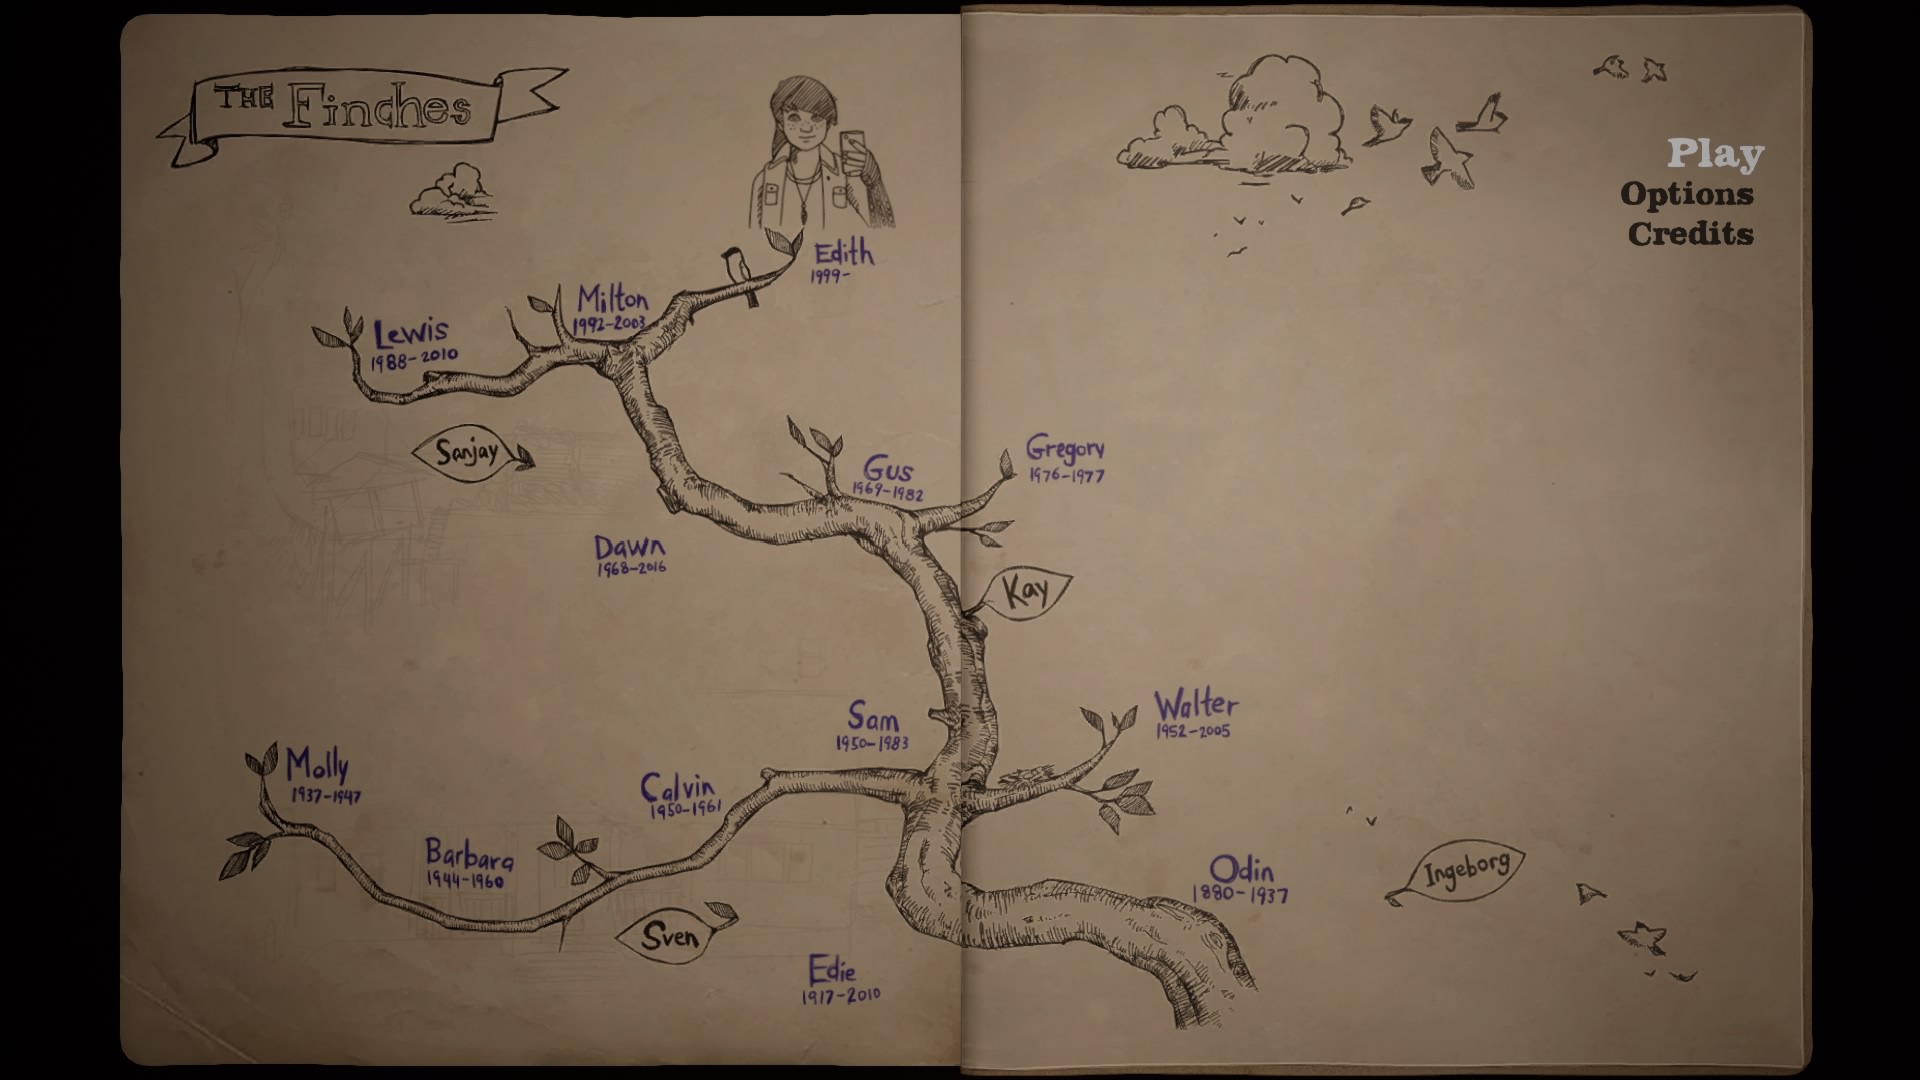 THE Finches
Play
Options
Credits
Edith
1999-
Milton
1992-2003
Lewis
1988-2010
Sanjay
Gus
1969-1982
Gregory
1976-1977
Dawn
1968-2016
Kay
Sam
1950-1983
Walter
1952-2005
Molly
1937-1947
Calvin
1950-1961
Barbara
1944-1960
Sven
Odin
1880-1937
Ingeborg
Edie
1917-2010